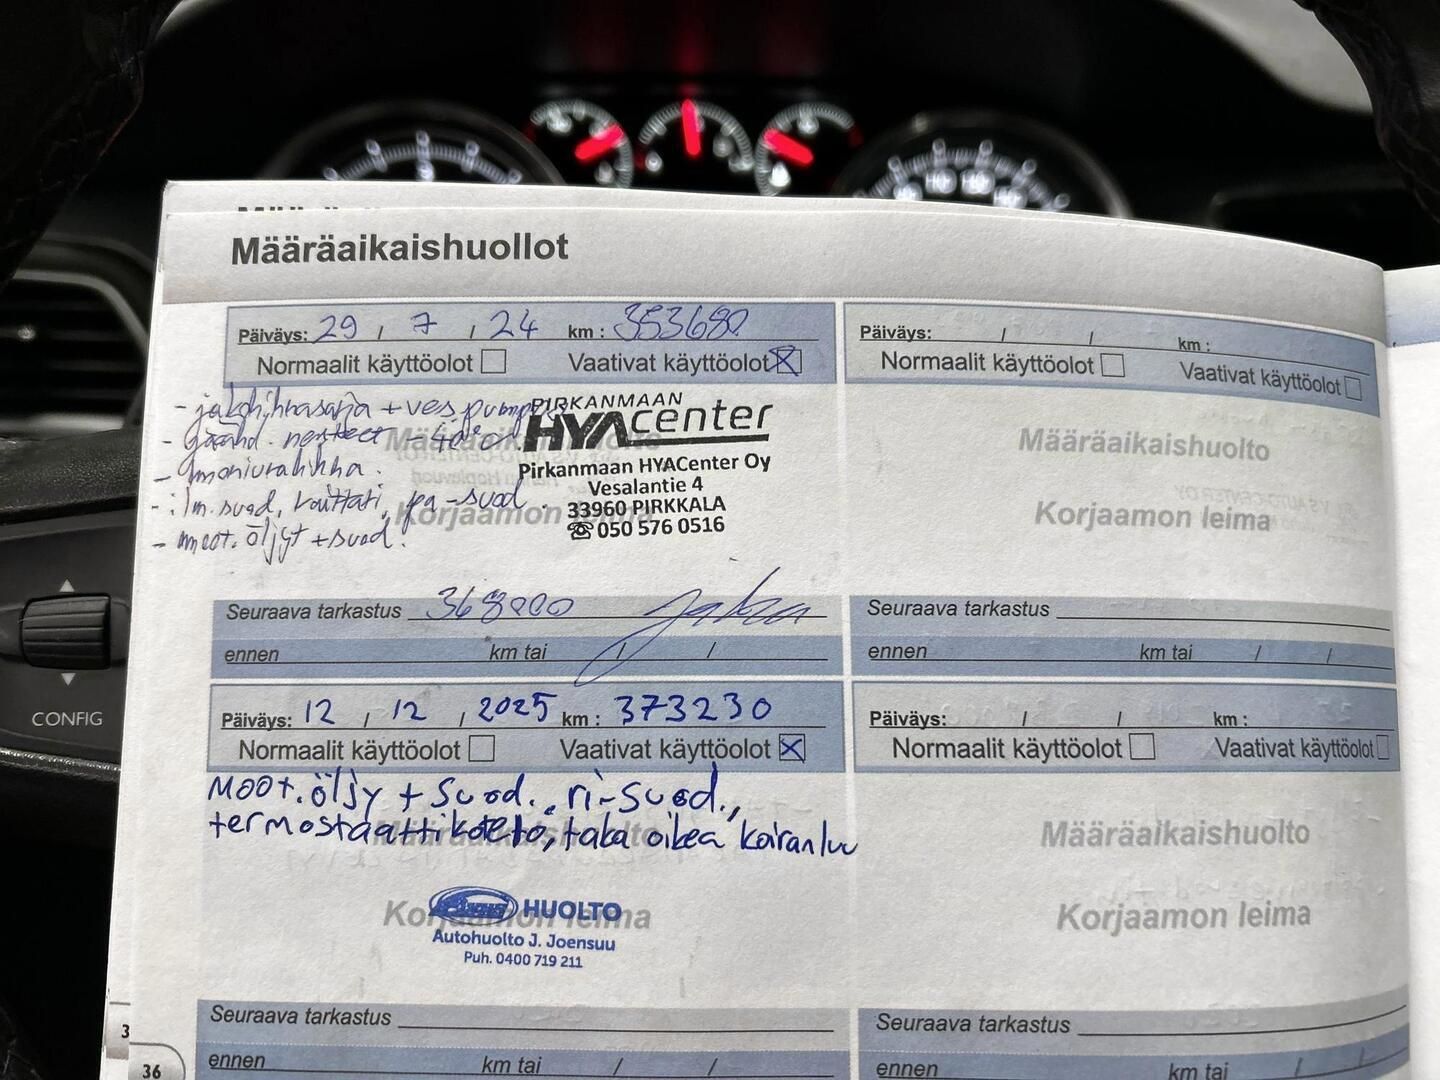 Määräaikaishuollot
Päiväys: 29 / 7 / 24 km : 353680
Normaalit käyttöolot Vaativat käyttöolot
- jakohihnasarja + ves.pumppu
- jäähd. nesteet
- moniurahihna.
- ilm.suod, raitisi, pa-suod.
- moot. öljyt + suod.
PIRKANMAAN
HYAcenter
Pirkanmaan HYACenter Oy
Vesalantie 4
33960 PIRKKALA
050 576 0516
Määräaikaishuolto
Korjaamon leima
Seuraava tarkastus 368000
ennen km tai / /
Päiväys: 12 / 12 / 2025 km : 373230
Normaalit käyttöolot Vaativat käyttöolot
Moot.öljy + suod., ri-suod.,
termostaattikotelo, taka oikea koiranluu
Määräaikaishuolto
Korjaamon leima
HUOLTO
Autohuolto J. Joensuu
Puh. 0400 719 211
Seuraava tarkastus
ennen km tai / /
Päiväys: / / km :
Normaalit käyttöolot Vaativat käyttöolot
Määräaikaishuolto
Korjaamon leima
Seuraava tarkastus
ennen km tai / /
Päiväys: / / km :
Normaalit käyttöolot Vaativat käyttöolot
Määräaikaishuolto
Korjaamon leima
Seuraava tarkastus
ennen km tai / /
CONFIG
3
36